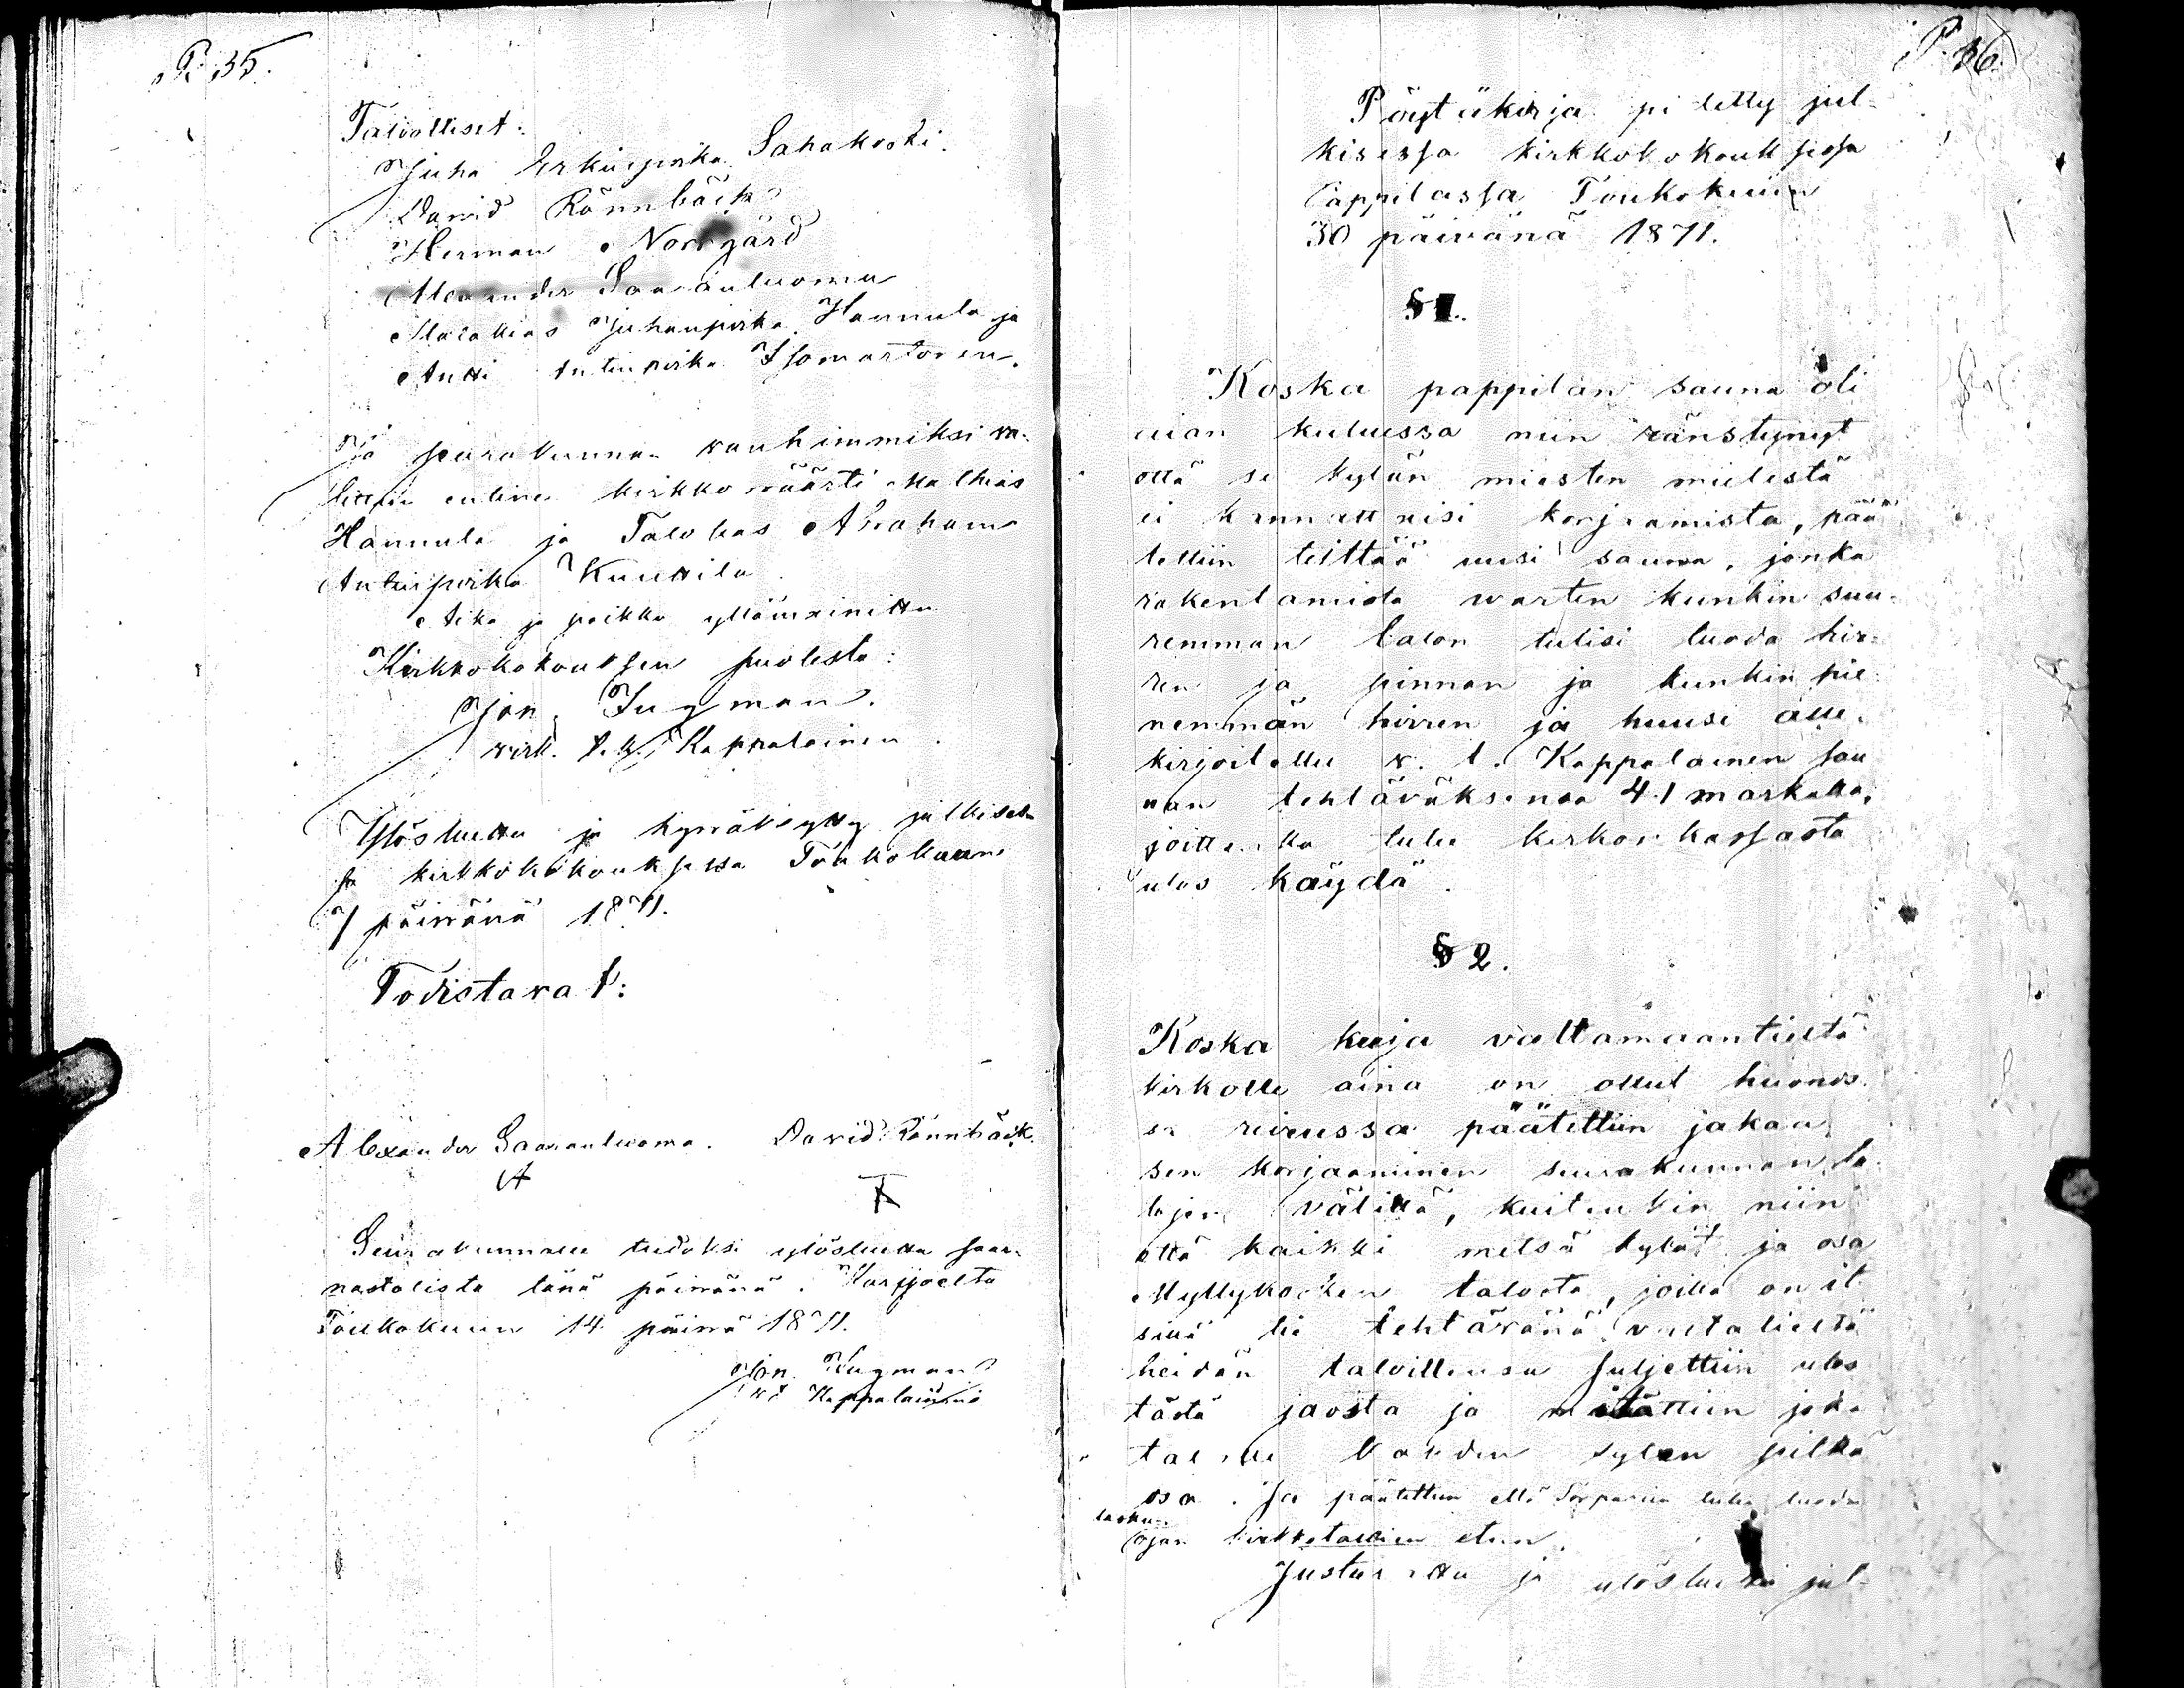 P. 35.
Talolliset:
Juha Erkinpoika Sahakoski.
David Rönnbäck
Herman Norrgård
Alexander Saaranluoma
Malakias Juhanpoika Hannula ja
Antti Antinpoika Isomartonen.
Ja seurakunnan vanhimmiksi va-
littiin entinen kirkkoväärti Malkias
Hannula ja Talokas Abraham
Antinpoika Knuttila
Aika ja paikka ylläm­ainittu
Kirkkokokouksen puolesta:
Jon. Jugman.
virk. t. Kappalainen.
Ylösluettu ja hyväksytty julkises-
sa kirkkokokouksessa Toukokuun
7 päivänä 1871.
Todistavat:
Alexander Saaranluoma. David Rönnbäck.
Seurakunnalle tiedoksi ylösluettu saar-
nastolista tänä päivänä. Karijoelta
Toukokuun 14 päivä 1871.
Jon. Jugman
vt Kappalainen
P. 36.
Pöytäkirja pidetty jul-
kisessa kirkkokokouksessa
Pappilassa Toukokuun
30 päivänä 1871.
§ 1.
Koska pappilan sauna oli
aian kuluessa niin ränstynyt
että se kylän miesten mielestä
ei kannattaisi korjaamista, pää-
tettiin teittää uusi sauna, jonka
rakentamista warten kunkin suu-
remman talon tulisi tuoda hir-
ren ja pinnan ja kunkin pie-
nemmän hirren ja huusi alle-
kirjoitettu v. t. Kappalainen sau
nan tehtäväksensä 41 markalla,
joitten ka tulee kirkon kassasta
ulos käydä.
§ 2.
Koska kuja valtamaantieltä
kirkolle aina on ollut huonos-
sa reirussa päätettiin jakaa
sen korjaaminen seurakunnan ta-
lojen välillä, kuitenkin niin
että kaikki metsä kylät ja osa
Myllykosken taloista, joilla on it
sillä tie tehtävänä valtatieltä
heidän taloillensa suljettiin ulos
tästä jaosta ja mitattiin joka
talolle kahden sylen pitkä
osa. Ja päätettiin että tulee tuoda
lasku-
ojan kirkkotallien eteen.
Justeerattu ja ylösluettu jul-